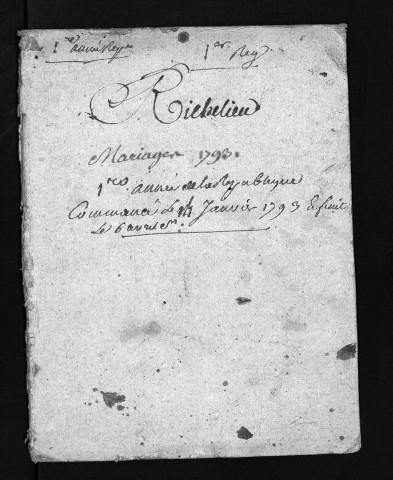 1re année Rep
1er Reg
Richelieu
Mariages 1793.
1re année de la Republique
Commencé le 14 Janvier 1793 & finit
le 6 avril